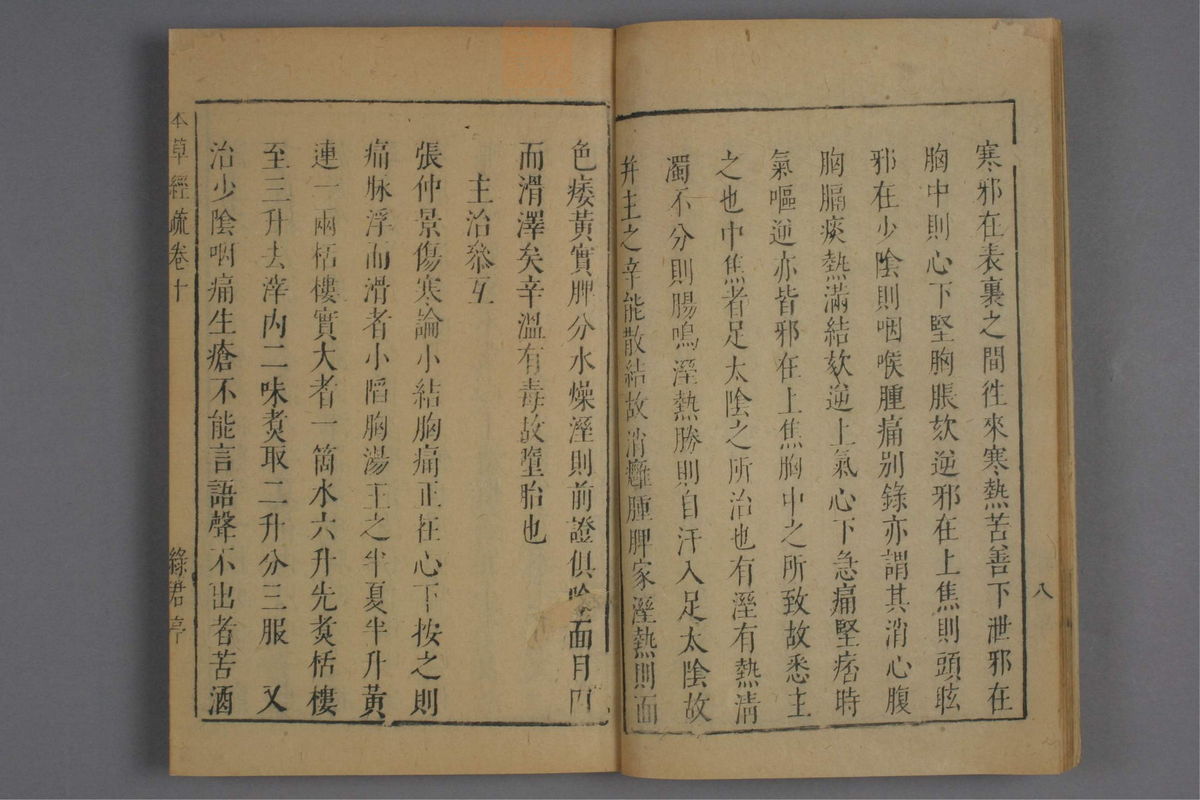 寒邪在表裏之間徃來寒熱苦善下泄邪在
胸中則心下堅胸脹欬逆邪在上焦則頭眩
邪在少陰則咽喉腫痛别錄亦謂其消心腹
胸膈痰熱滿結欬逆上氣心下急痛堅痞時
氣嘔逆亦皆邪在上焦胸中之所致故悉主
之也中焦者足太陰之所治也有溼有熱淸
濁不分則腸鳴溼熱勝則自汗入足太陰故
并主之辛能散結故消癰腫脾家溼熱則面
色痿黃實脾分水燥溼則前證俱除面目
而滑澤矣辛溫有毒故墮胎也
主治叅互
張仲景傷寒論小結胸痛正在心下按之則
痛脉浮而滑者小䧟胸湯主之半夏半升黃
連一兩栝樓實大者一箇水六升先煑栝樓
至三升去滓內二味煑取二升分三服　又
治少陰咽痛生瘡不能言語聲不出者苦酒
本草經疏卷十
綠君亭
八